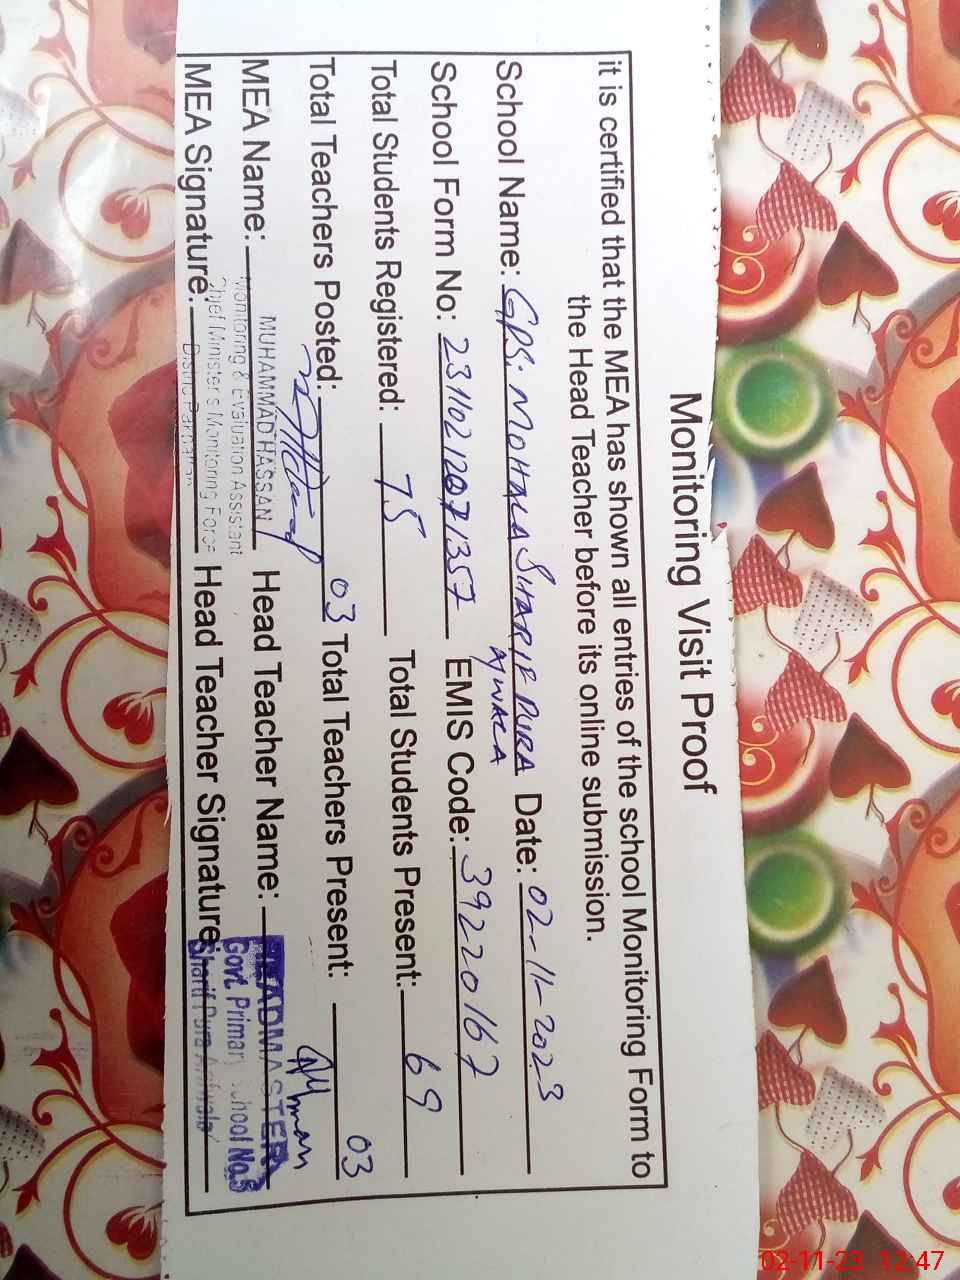 Monitoring Visit Proof
it is certified that the MEA has shown all entries of the school Monitoring Form to
the Head Teacher before its online submission.
School Name: GPS. MOHALA SHARIF PURA Date: 02-11-2023
School Form No: 23110212071357 EMIS Code: 39220167
Total Students Registered: 75 Total Students Present: 69
Total Teachers Posted: 03 Total Teachers Present: 03
MEA Name: MUHAMMAD HASSAN Head Teacher Name: HEADMASTER
Monitoring & Evaluation Assistant Govt. Primary School No.
MEA Signature. Head Teacher Signature: Sharif Pura
Chief Minister's Monitoring Force
02-11-23 12:47